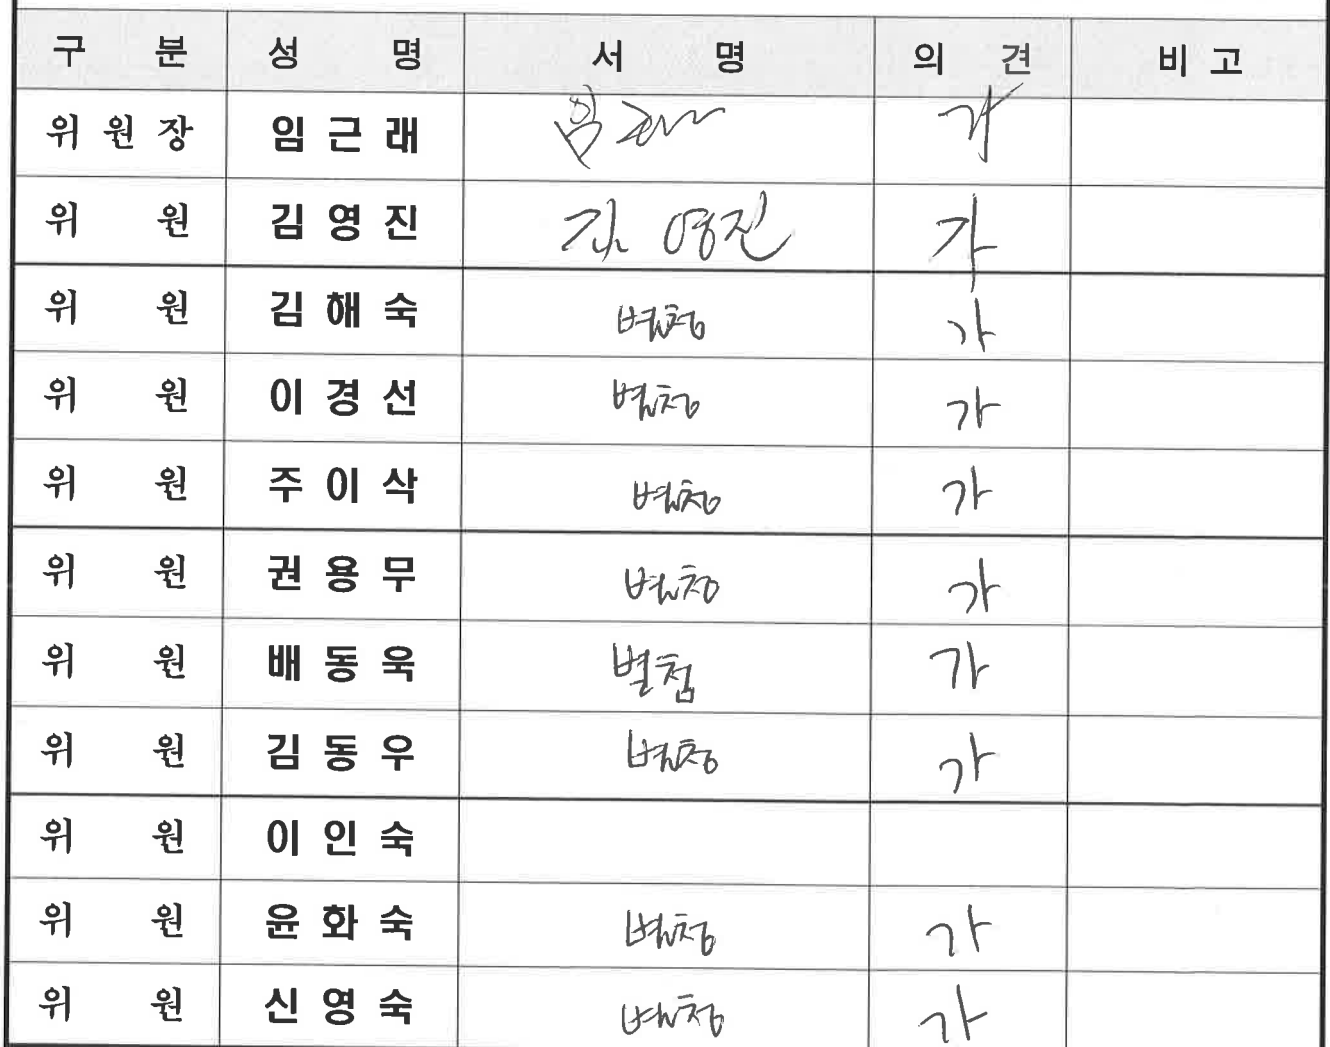 구 분 성 명 서 명 의 견 비 고
위 원 장 임 근 래 임근래 가
위 원 김 영 진 김영진 가
위 원 김 해 숙 별첨 가
위 원 이 경 선 별첨 가
위 원 주 이 삭 별첨 가
위 원 권 용 무 별첨 가
위 원 배 동 욱 별첨 가
위 원 김 동 우 별첨 가
위 원 이 인 숙
위 원 윤 화 숙 별첨 가
위 원 신 영 숙 별첨 가